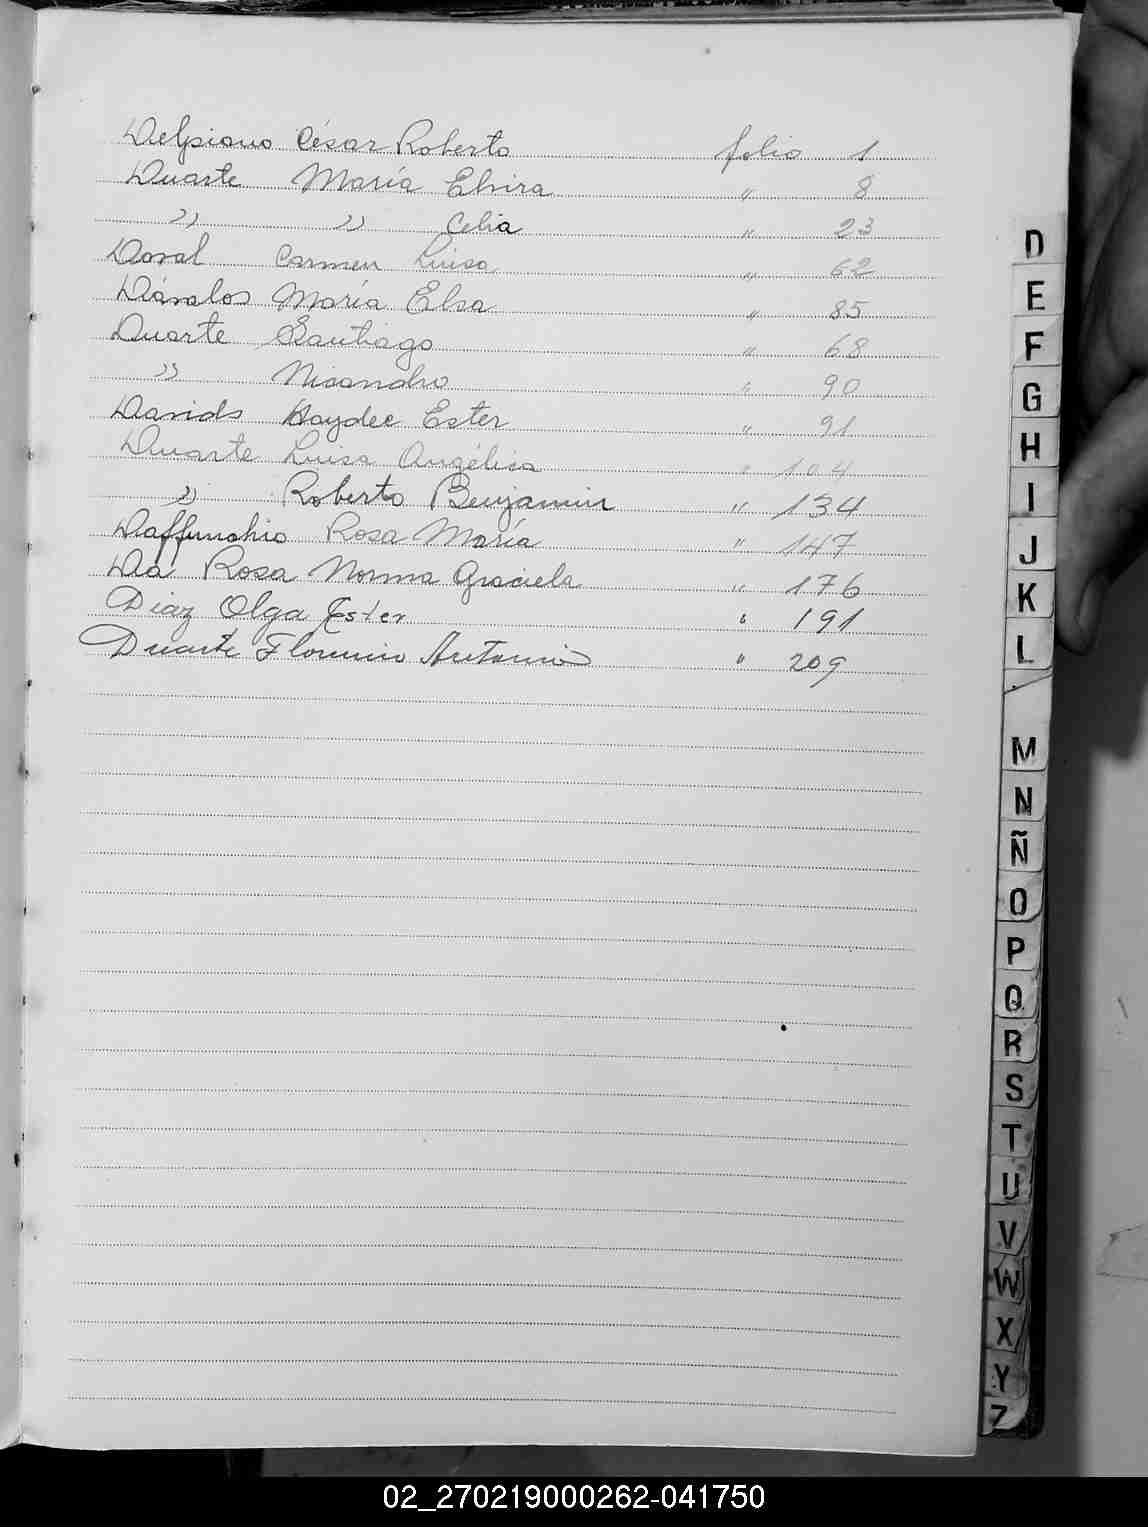 Delpiano César Roberto folio 1
Duarte María Elvira " 8
" " Celia " 23
Doval Carmen Luisa " 62
Dávalos María Elsa " 85
Duarte Santiago " 68
" Nicandro " 90
Davids Haydee Ester " 91
Duarte Luisa Angélica " 104
" Roberto Benjamin " 134
Daffunchio Rosa María " 147
Da Rosa Norma Graciela " 176
Diaz Olga Ester " 191
Duarte Florencio Antonio " 209
D
E
F
G
H
I
J
K
L
M
N
Ñ
O
P
Q
R
S
T
U
V
W
X
Y
Z
02_270219000262-041750